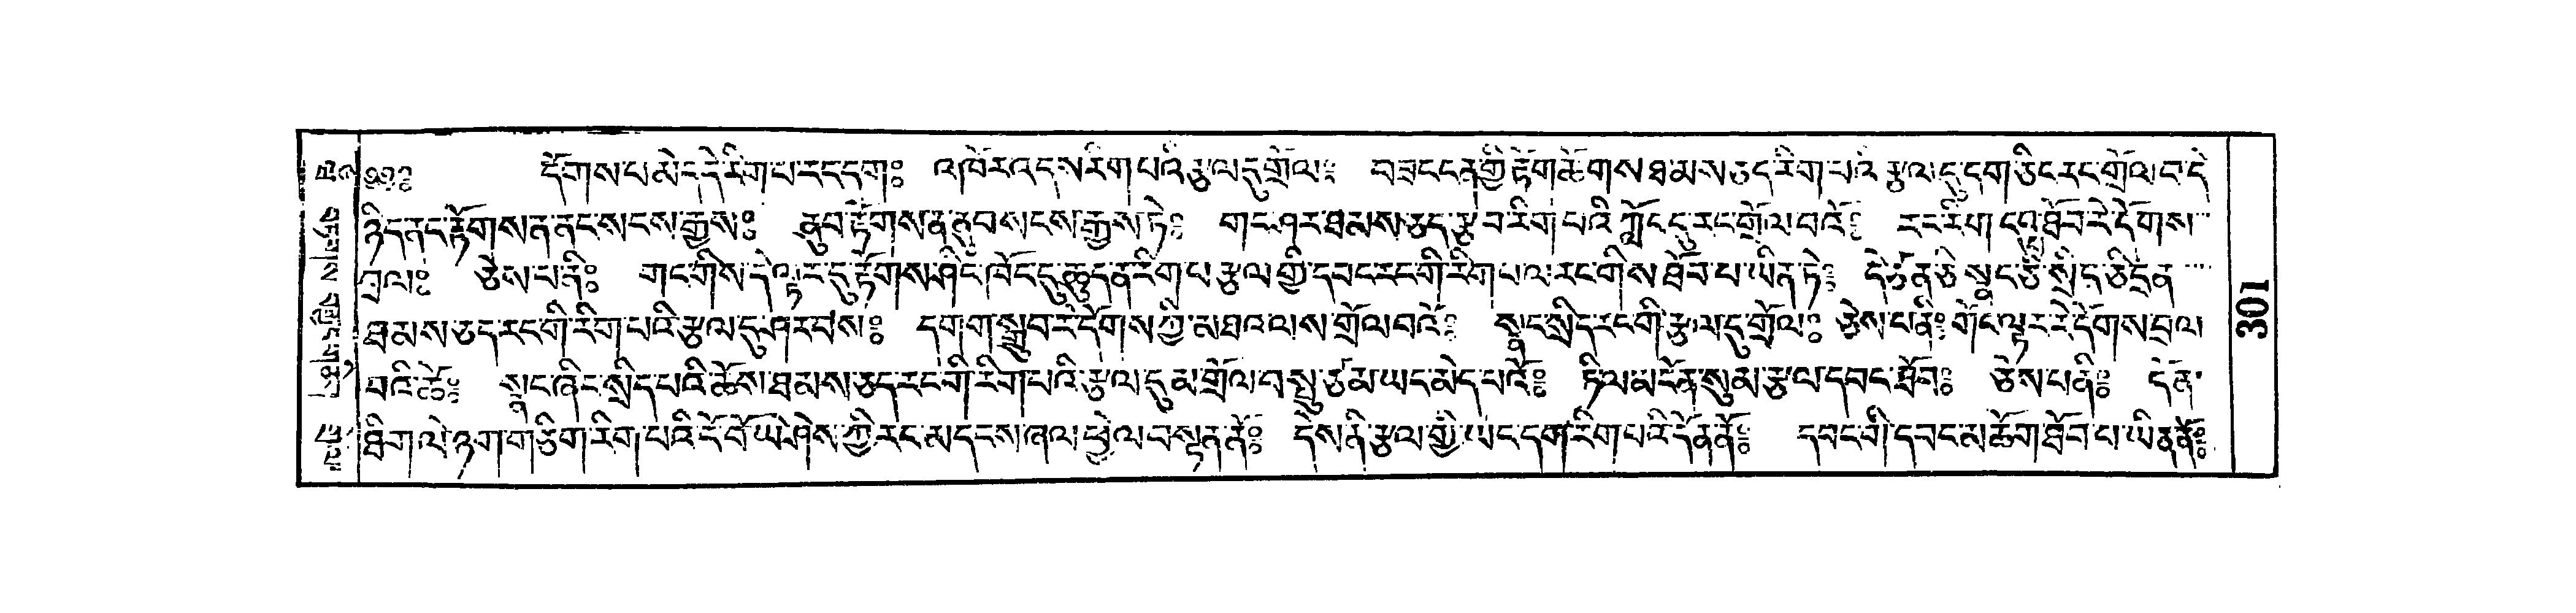 དོགས་པ་མེད་དེ་རིག་པ་རང་དག༔ འཁོར་འདས་རིག་པའི་རྩལ་དུ་གྲོལ༔ བཟང་ངན་གྱི་རྟོག་ཚོགས་ཐམས་ཅད་རིག་པའི་རྩལ་དུ་དག་ཅིང་རང་གྲོལ་བ་དེ་
ཉིད་ནང་རྟོགས་ན་ནང་སངས་རྒྱས༔ ནུབ་རྟོགས་ན་ནུབ་སངས་རྒྱས་ཏེ༔ གང་ཤར་ཐམས་ཅད་རྩ་བ་རིག་པའི་ཀློང་དུ་རང་གྲོལ་བའོ༔ རང་རིག་དབུ་ཐོབ་རེ་དོགས་
བྲལ༔ ཅེས་པ་ནི༔ གང་གིས་དེ་ལྟར་དུ་རྟོགས་ཤིང་ཁོང་དུ་ཆུད་ན་རིག་པ་རྩལ་གྱི་དབང་རང་གི་རིག་པ་ལ་རང་གིས་ཐོབ་པ་ཡིན་ཏེ༔ དེ་ཙན་ཅི་སྣང་ཅི་སྲིད་ཅི་དྲན་
ཐམས་ཅད་རང་གི་རིག་པའི་རྩལ་དུ་ཤར་བས༔ དགག་སྒྲུབ་རེ་དོགས་ཀྱི་མཐའ་ལས་གྲོལ་བའོ༔ སྣང་སྲིད་རང་གི་རྩལ་དུ་གྲོལ༔ ཅེས་པ་ནི༔ གོང་ལྟར་རེ་དོགས་བྲལ་
བའི་ཚེ༔ སྣང་ཞིང་སྲིད་པའི་ཆོས་ཐམས་ཅད་རང་གི་རིག་པའི་རྩལ་དུ་མ་གྲོལ་བ་སྤུ་ཙམ་ཡང་མེད་པའོ༔ ཏིལ་མ་དོན་སུམ་རྩལ་དབང་ཐོབ༔ ཅེས་པ་ནི༔ དེ་ན་
ཐིག་ལེ་ཉག་གཅིག་རིག་པའི་ངོ་བོ་ཡེ་ཤེས་ཀྱི་རང་མདངས་ཞལ་ཕྱེ་ལ་བསྟན་ནོ༔ དེས་ནི་རྩལ་གྱི་ཡང་དག་རིག་པའི་དོན་ནོ༔ དབང་གི་དབང་མཆོག་ཐོབ་པ་ཡིན་ནོ༔
103